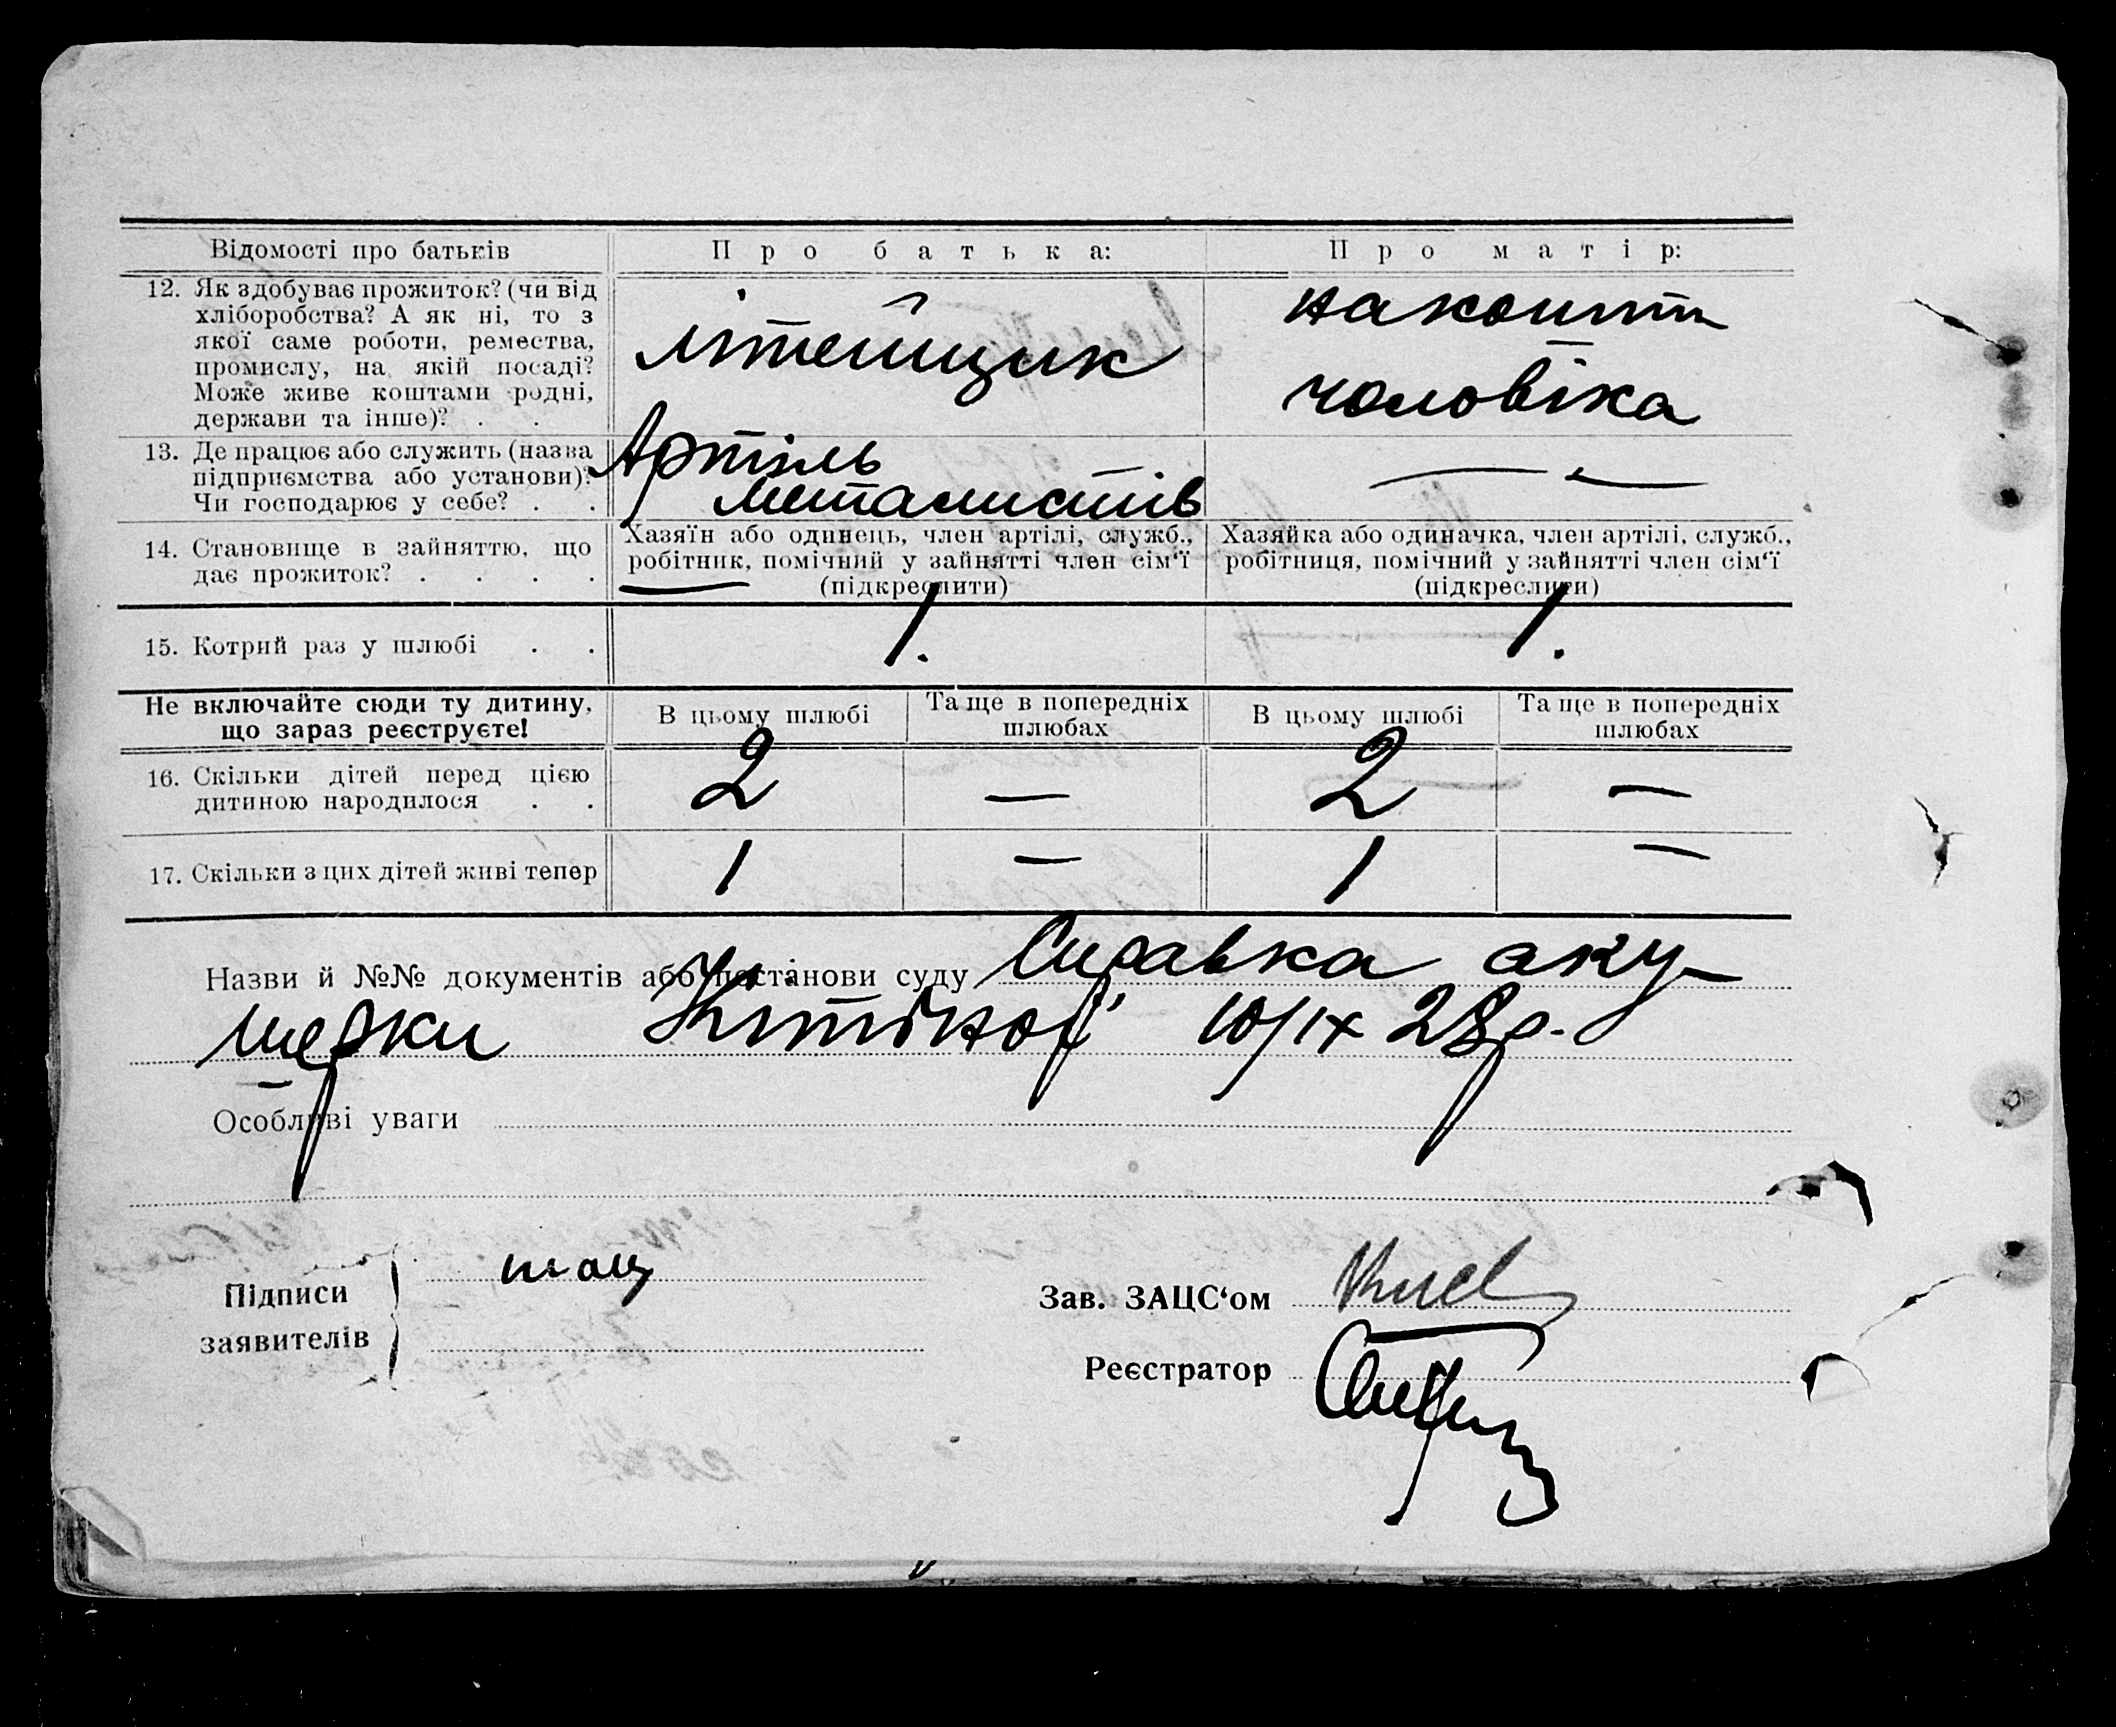 Відомості про батьків
Про батька:
Про матір:
12. Як здобуває прожиток? (чи від
хліборобства? А як ні, то з
якої саме роботи, ремества,
промислу, на якій посаді?
Може живе коштами родні,
держави та інше)? . .
літейщик
на кошти
чоловіка
13. Де працює або служить (назва
підприємства або установи)?
Чи господарює у себе? . .
Артіль
металистів
— —
14. Становище в зайняттю, що
дає прожиток? . . . .
Хазяїн або одинець, член артілі, служб.,
робітник, помічний у зайнятті член сім'ї
(підкреслити)
Хазяйка або одиначка, член артілі, служб.,
робітниця, помічний у зайнятті член сім'ї
(підкреслити)
15. Котрий раз у шлюбі . .
1.
1.
Не включайте сюди ту дитину,
що зараз реєструєте!
В цьому шлюбі
Та ще в попередніх
шлюбах
В цьому шлюбі
Та ще в попередніх
шлюбах
16. Скільки дітей перед цією
дитиною народилося . .
2
—
2
—
17. Скільки з цих дітей живі тепер
1
—
1
—
Назви й №№ документів або постанови суду Справка аку-
шерки 10/IX 28р.
Особливі уваги
Підписи
заявителів
Зав. ЗАЦС'ом
Реєстратор